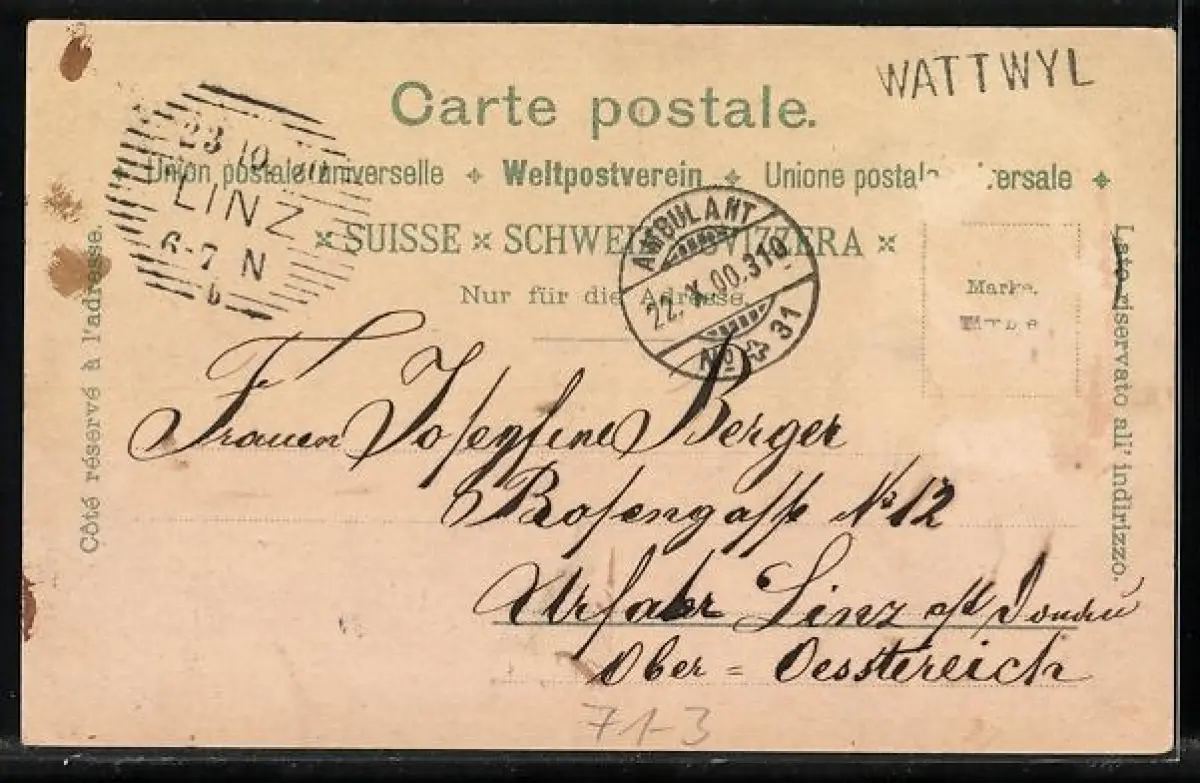 WATTWYL
Carte postale.
Union postale universelle ✦ Weltpostverein ✦ Unione postale ersale ✦
× SUISSE × SCHWEI VIZZERA ×
Nur für die Adresse.
23 10
LINZ
6-7 N
b
AMBULANT
22.X.00.310
No 31
Marke.
Côté réservé à l'adresse.
Lato riservato all' indirizzo.
Frauen Josepfine Berger
Rosengasse No 12
Urfahr Linz a/d Donau
Ober = Oesstereich
71-3